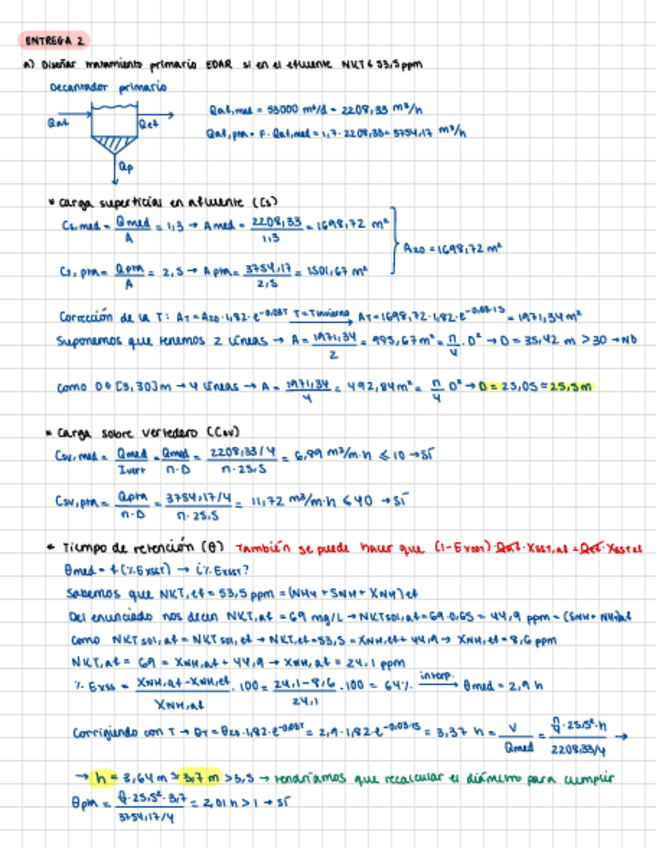 ENTREGA 2
a) Diseñar tratamiento primario EDAR si en el efluente NKT ≤ 53,5 ppm
Decantador primario
Qaf Qef
Qp
Qaf,med = 53000 m³/d = 2208,33 m³/h
Qaf,pta = F · Qaf,med = 1,7 · 2208,33 = 3754,17 m³/h
* Carga superficial en afluente (Cs)
Cs,med = Qmed/A = 1,3 → Amed = 2208,33/1,3 = 1698,72 m²
Cs,pta = Qpta/A = 2,5 → Apta = 3754,17/2,5 = 1501,67 m²
A20 = 1698,72 m²
Corrección de la T: AT = A20 · 1,82 · e^-0,03T T=Tinvierno → AT = 1698,72 · 1,82 · e^-0,03·15 = 1971,34 m²
Suponemos que tenemos 2 líneas → A = 1971,34/2 = 985,67 m² = π/4 · D² → D = 35,42 m > 30 → NO
Como D ∈ [5,30] m → 4 líneas → A = 1971,34/4 = 492,84 m² = π/4 D² → D = 25,05 ≈ 25,5 m
* Carga sobre vertedero (Csv)
Csv,med = Qmed/Lvert = Qmed/π·D = 2208,33/4 / π·25,5 = 6,89 m³/m·h ≤ 10 → SÍ
Csv,pta = Qpta/π·D = 3754,17/4 / π·25,5 = 11,72 m³/m·h ≤ 40 → SÍ
* Tiempo de retención (θ) También se puede hacer que (1-Exsst) · Qaf · Xsst,af = Qef · Xsst,ef
θmed = f (% Exsst) → ¿% Exsst?
Sabemos que NKT,ef = 53,5 ppm = (NH4 + SNH + XNH)ef
Del enunciado nos dicen NKT,af = 69 mg/L → NKTsol,af = 69 · 0,65 = 44,9 ppm = (SNH + NH4)af
Como NKT sol,af = NKT sol,ef → NKT,ef = 53,5 = XNH,ef + 44,9 → XNH,ef = 8,6 ppm
NKT,af = 69 = XNH,af + 44,9 → XNH,af = 24,1 ppm
% Exss = XNH,af - XNH,ef / XNH,af · 100 = 24,1 - 8,6 / 24,1 · 100 = 64% interp. → θmed = 2,9 h
Corrigiendo con T → θT = θ20 · 1,82 · e^-0,03T = 2,9 · 1,82 · e^-0,03·15 = 3,37 h = V/Qmed = π/4 · 25,5² · h / 2208,33/4 →
→ h = 3,64 m ≈ 3,7 m > 5,5 → tendríamos que recalcular el diámetro para cumplir
θpta = π/4 · 25,5² · 3,7 / 3754,17/4 = 2,01 h > 1 → SÍ